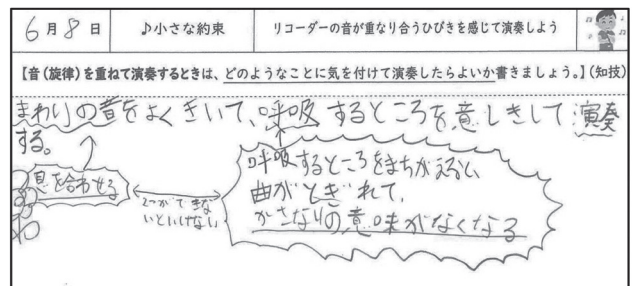 6月8日
♪小さな約束
リコーダーの音が重なり合うひびきを感じて演奏しよう
【音(旋律)を重ねて演奏するときは、どのようなことに気を付けて演奏したらよいか書きましょう。】(知技)
まわりの音をよくきいて、呼吸するところを意しきして演奏
する。
息を合わせる
2つができな
いといけない
呼吸するところをまちがえると、
曲がとぎれて、
かさなりの意味がなくなる